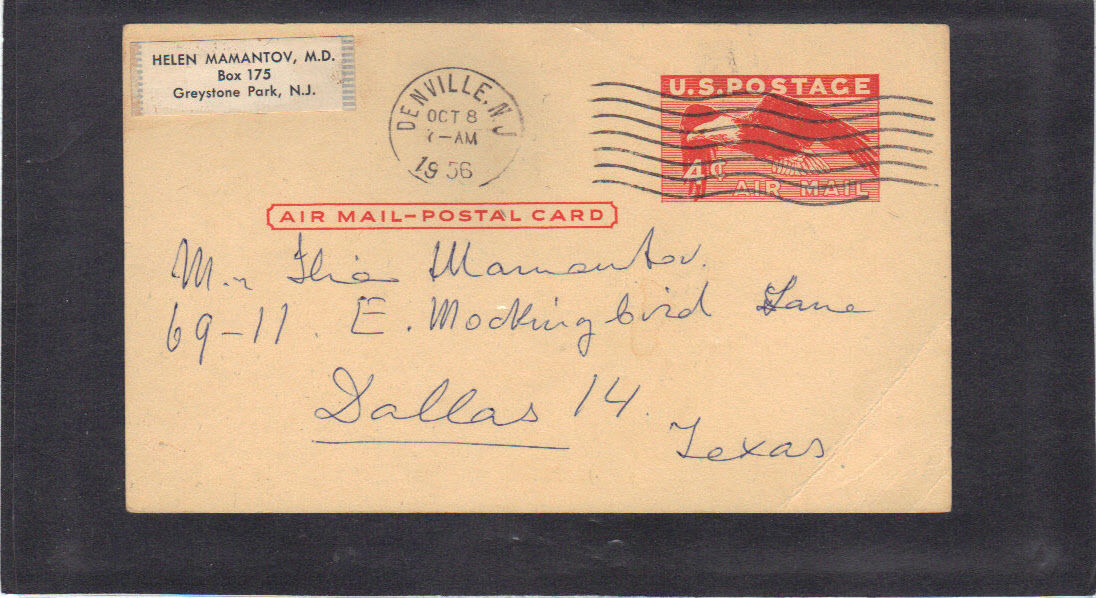 HELEN MAMANTOV, M.D.
Box 175
Greystone Park, N.J.
DENVILLE, N.J
OCT 8
7-AM
1956
U.S. POSTAGE
4¢
AIR MAIL
AIR MAIL-POSTAL CARD
Mr Ilia Mamantov.
69-11. E. Mockingbird Lane
Dallas 14.
Texas